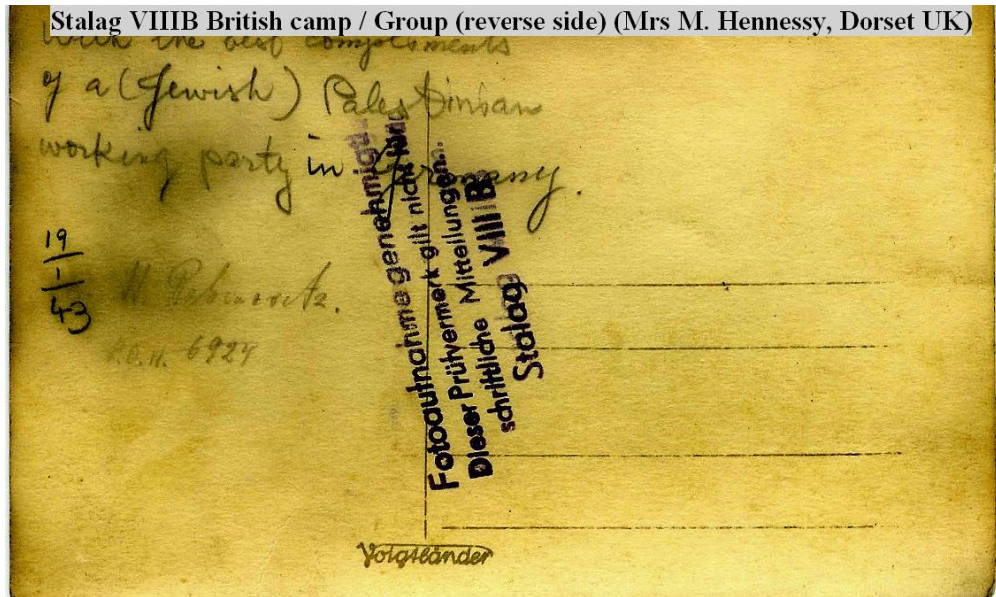 Stalag VIIIB British camp / Group (reverse side) (Mrs M. Hennessy, Dorset UK)
With the best compliments
of a (Jewish) Palestinian
working party in Germany.
19
1
43
6924
Fotoaufnahme genehmigt.
Dieser Prüfvermerk gilt nicht für
schriftliche Mitteilungen.
Stalag VIII B
Voigtländer